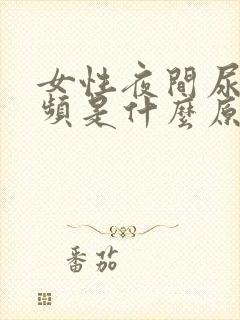 女性夜間尿
頻是什麼原
番茄